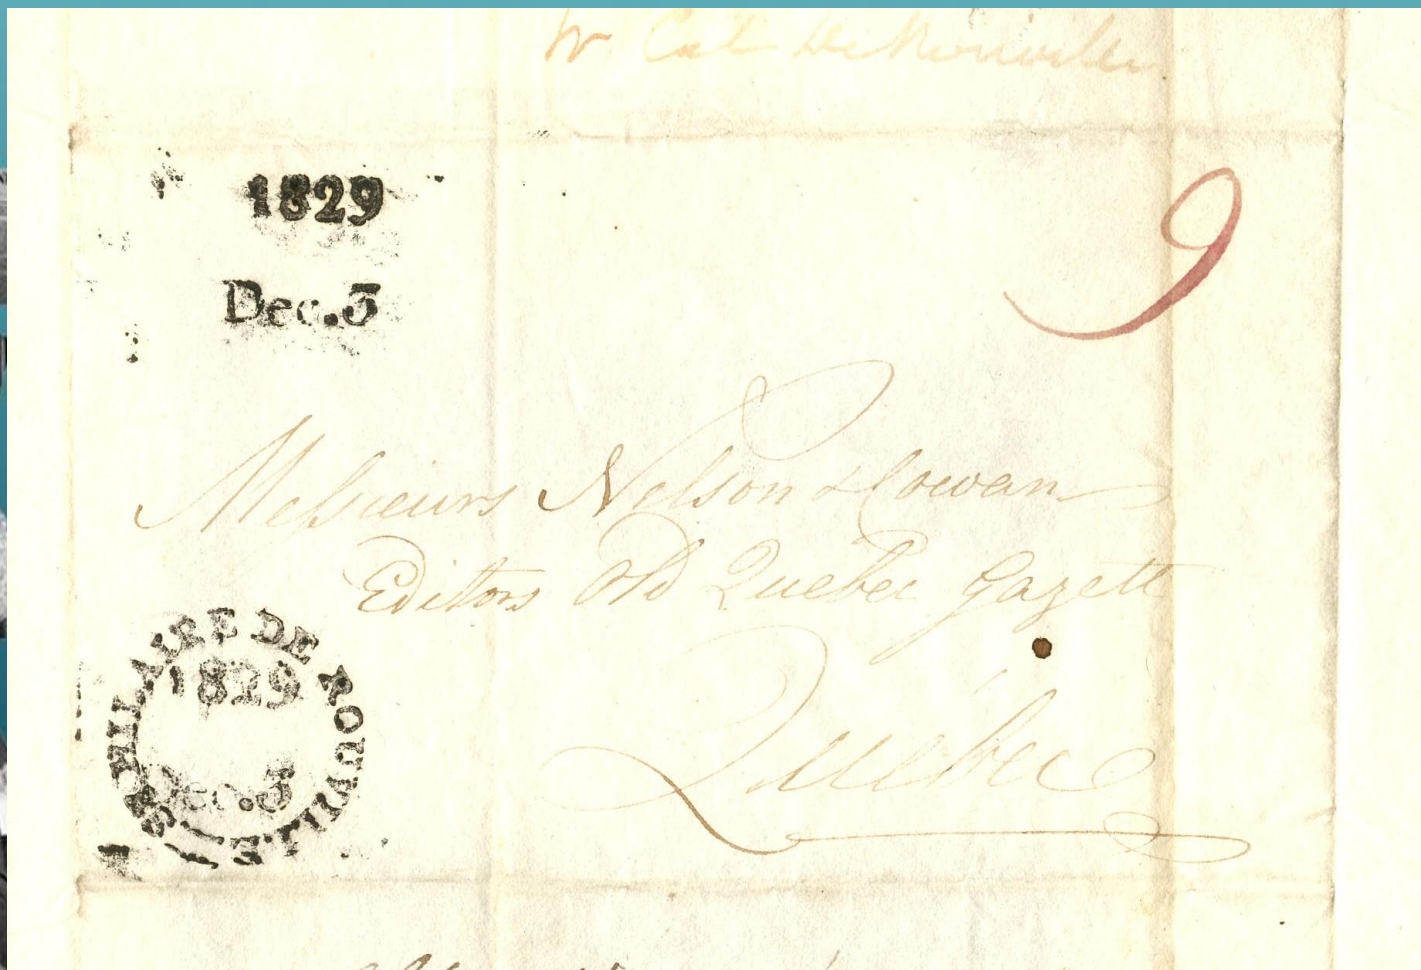 1829
Dec. 3
9
Messieurs Nelson & Cowan
Editors Old Quebec Gazett
Quebec
ST HILAIRE DE ROUVILLE
1829
Dec. 3